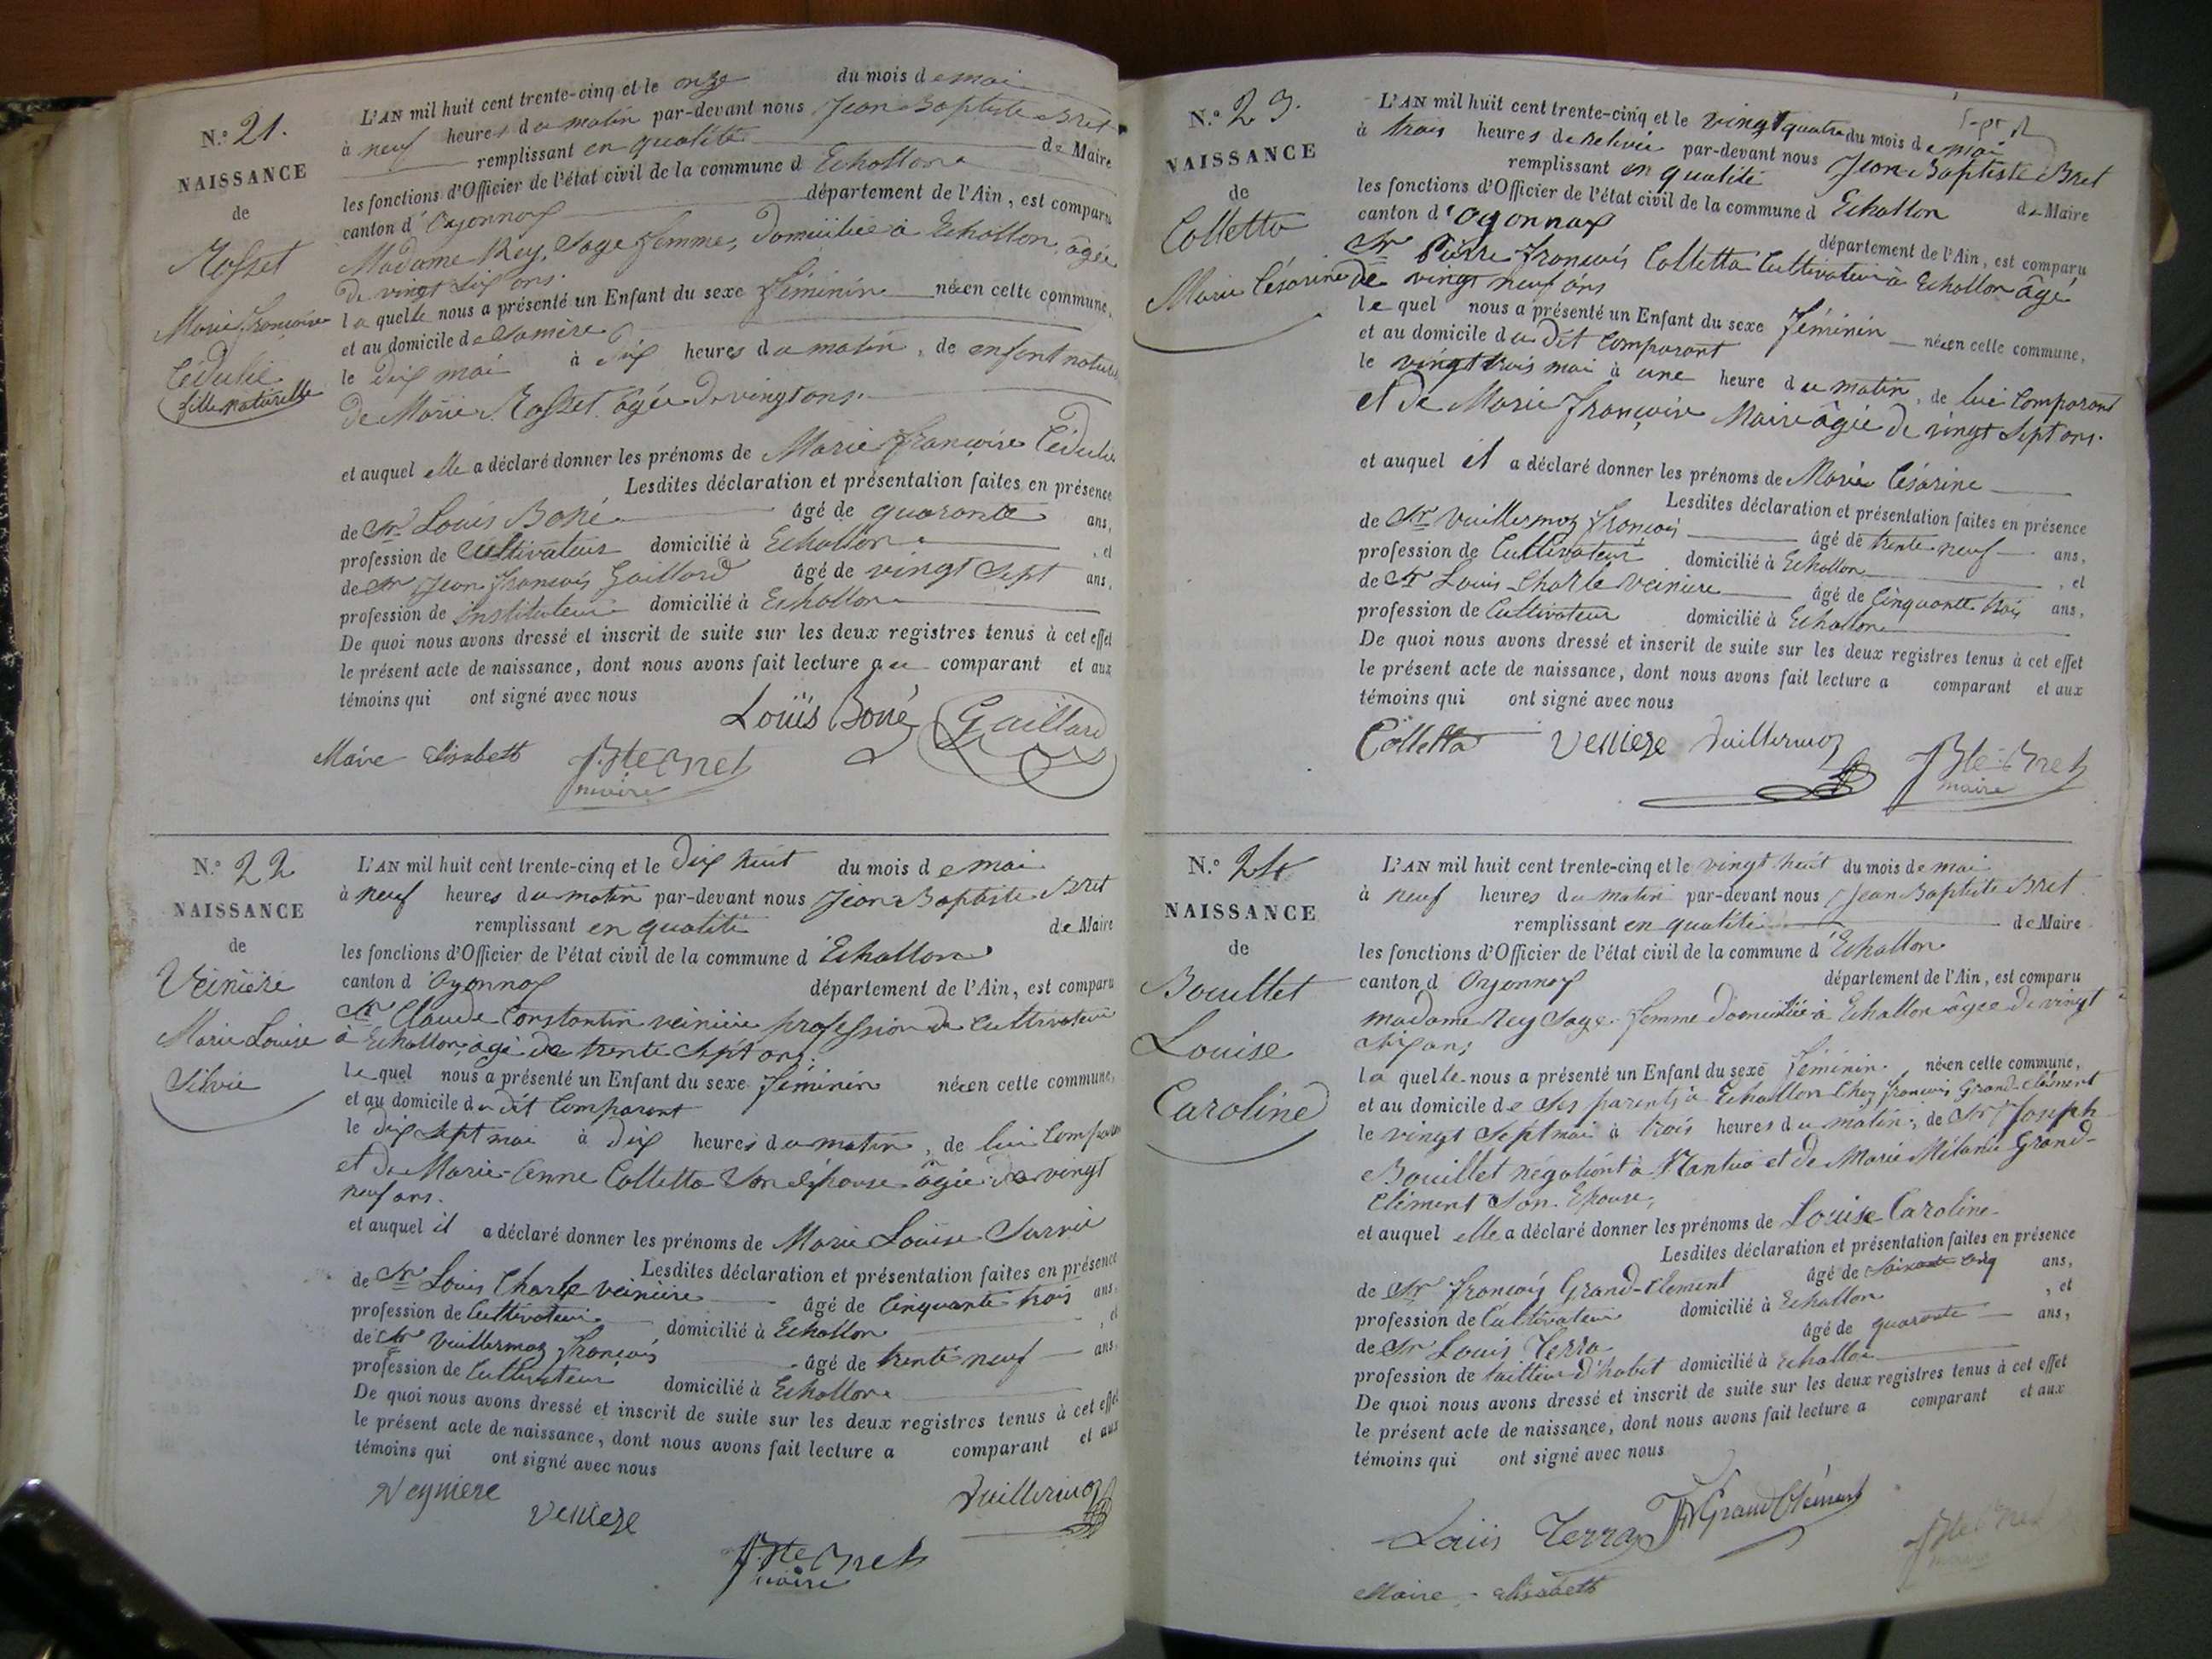 N.º 21.
NAISSANCE
de
Rosset
Marie françoise
Cédulie
fille naturelle
L'AN mil huit cent trente-cinq et le onze du mois de mai
à neuf heures du matin par-devant nous Jean Baptiste Bret
remplissant en qualité de Maire
les fonctions d'Officier de l'état civil de la commune d'Echallon
canton d'Oyonnax département de l'Ain, est comparu
Madame Rey, Sage femme, domiciliée à Echallon, agée
de vingt six ans.
laquelle nous a présenté un Enfant du sexe féminin née en cette commune,
et au domicile de sa mère
le dix mai à dix heures du matin, de enfant naturel
de Marie Rosset agée de vingt ans.
et auquel elle a déclaré donner les prénoms de Marie françoise Cédulie
Lesdites déclaration et présentation faites en présence
de Sr Louis Boné âgé de quarante ans,
profession de Cultivateur domicilié à Echallon, et
de Sr Jean François Gaillard âgé de vingt sept ans,
profession de instituteur domicilié à Echallon
De quoi nous avons dressé et inscrit de suite sur les deux registres tenus à cet effet
le présent acte de naissance, dont nous avons fait lecture au comparant et aux
témoins qui ont signé avec nous
Louis Boné Gaillard
Maire Elisabeth JBte Bret
maire
N.º 22
NAISSANCE
de
Veinière
Marie Louise
Silvie
L'AN mil huit cent trente-cinq et le dix huit du mois de mai
à neuf heures du matin par-devant nous Jean Baptiste Bret
remplissant en qualité de Maire
les fonctions d'Officier de l'état civil de la commune d'Echallon
canton d'Oyonnax département de l'Ain, est comparu
Sr Claude Constantin veinière profession de Cultivateur
à Echallon, agé de trente sept ans.
lequel nous a présenté un Enfant du sexe féminin née en cette commune,
et au domicile du dit Comparant
le dix sept mai à dix heures du matin, de lui Comparant
et de Marie-Anne Colletta Son épouse agée de vingt
neuf ans.
et auquel il a déclaré donner les prénoms de Marie Louise
Lesdites déclaration et présentation faites en présence
de Sr Louis Charle veinière âgé de Cinquante trois ans,
profession de Cultivateur domicilié à Echallon, et
de Sr Vuillermoz françois âgé de trente neuf ans,
profession de Cultivateur domicilié à Echallon
De quoi nous avons dressé et inscrit de suite sur les deux registres tenus à cet effet
le présent acte de naissance, dont nous avons fait lecture a comparant et aux
témoins qui ont signé avec nous
Veyniere Vuillermoz
JBte Bret
maire
N.º 23.
NAISSANCE
de
Colletta
Marie Césarine
L'AN mil huit cent trente-cinq et le vingt quatre du mois de mai
à trois heures de relevée par-devant nous Jean Baptiste Bret
remplissant en qualité de Maire
les fonctions d'Officier de l'état civil de la commune d Echallon
canton d'Oyonnax département de l'Ain, est comparu
Sr Pierre François Colletta Cultivateur à Echallon âgé
de vingt neuf ans
lequel nous a présenté un Enfant du sexe féminin née en cette commune,
et au domicile du dit Comparant
le vingt trois mai à une heure du matin, de lui Comparant
et de Marie françoise Maire âgée de vingt Sept ans.
et auquel il a déclaré donner les prénoms de Marie Césarine
Lesdites déclaration et présentation faites en présence
de Sr Vuillermoz françois âgé de trente neuf ans,
profession de Cultivateur domicilié à Echallon, et
de Sr Louis Charle veiniere âgé de Cinquante trois ans,
profession de Cultivateur domicilié à Echallon
De quoi nous avons dressé et inscrit de suite sur les deux registres tenus à cet effet
le présent acte de naissance, dont nous avons fait lecture a comparant et aux
témoins qui ont signé avec nous
Colletta Vuillermoz JBte Bret
maire
N.º 24
NAISSANCE
de
Bouillet
Louise
Caroline
L'AN mil huit cent trente-cinq et le vingt huit du mois de mai
à neuf heures du matin par-devant nous Jean Baptiste Bret
remplissant en qualité de Maire
les fonctions d'Officier de l'état civil de la commune d'Echallon
canton d Oyonnax département de l'Ain, est comparu
madame Rey Sage-femme domiciliée à Echallon agée de vingt
Six ans
laquelle nous a présenté un Enfant du sexe féminin née en cette commune,
et au domicile de Ses parents à Echallon Chez françois Grand-clément
le vingt Sept mai à trois heures du matin, de Sr Joseph
Bouillet négotiant à Nantua et de Marie Mélanie Grand-
Clément Son Epouse,
et auquel elle a déclaré donner les prénoms de Louise Caroline
Lesdites déclaration et présentation faites en présence
de Sr françois Grand-Clement âgé de Soixante cinq ans,
profession de Cultivateur domicilié à Echallon, et
de Sr Louis Terra âgé de quarante ans,
profession de tailleur d'habit domicilié à Echallon
De quoi nous avons dressé et inscrit de suite sur les deux registres tenus à cet effet
le présent acte de naissance, dont nous avons fait lecture a comparant et aux
témoins qui ont signé avec nous
Louis Terraz GrandClément
JBte Bret
Maire - Elisabeth